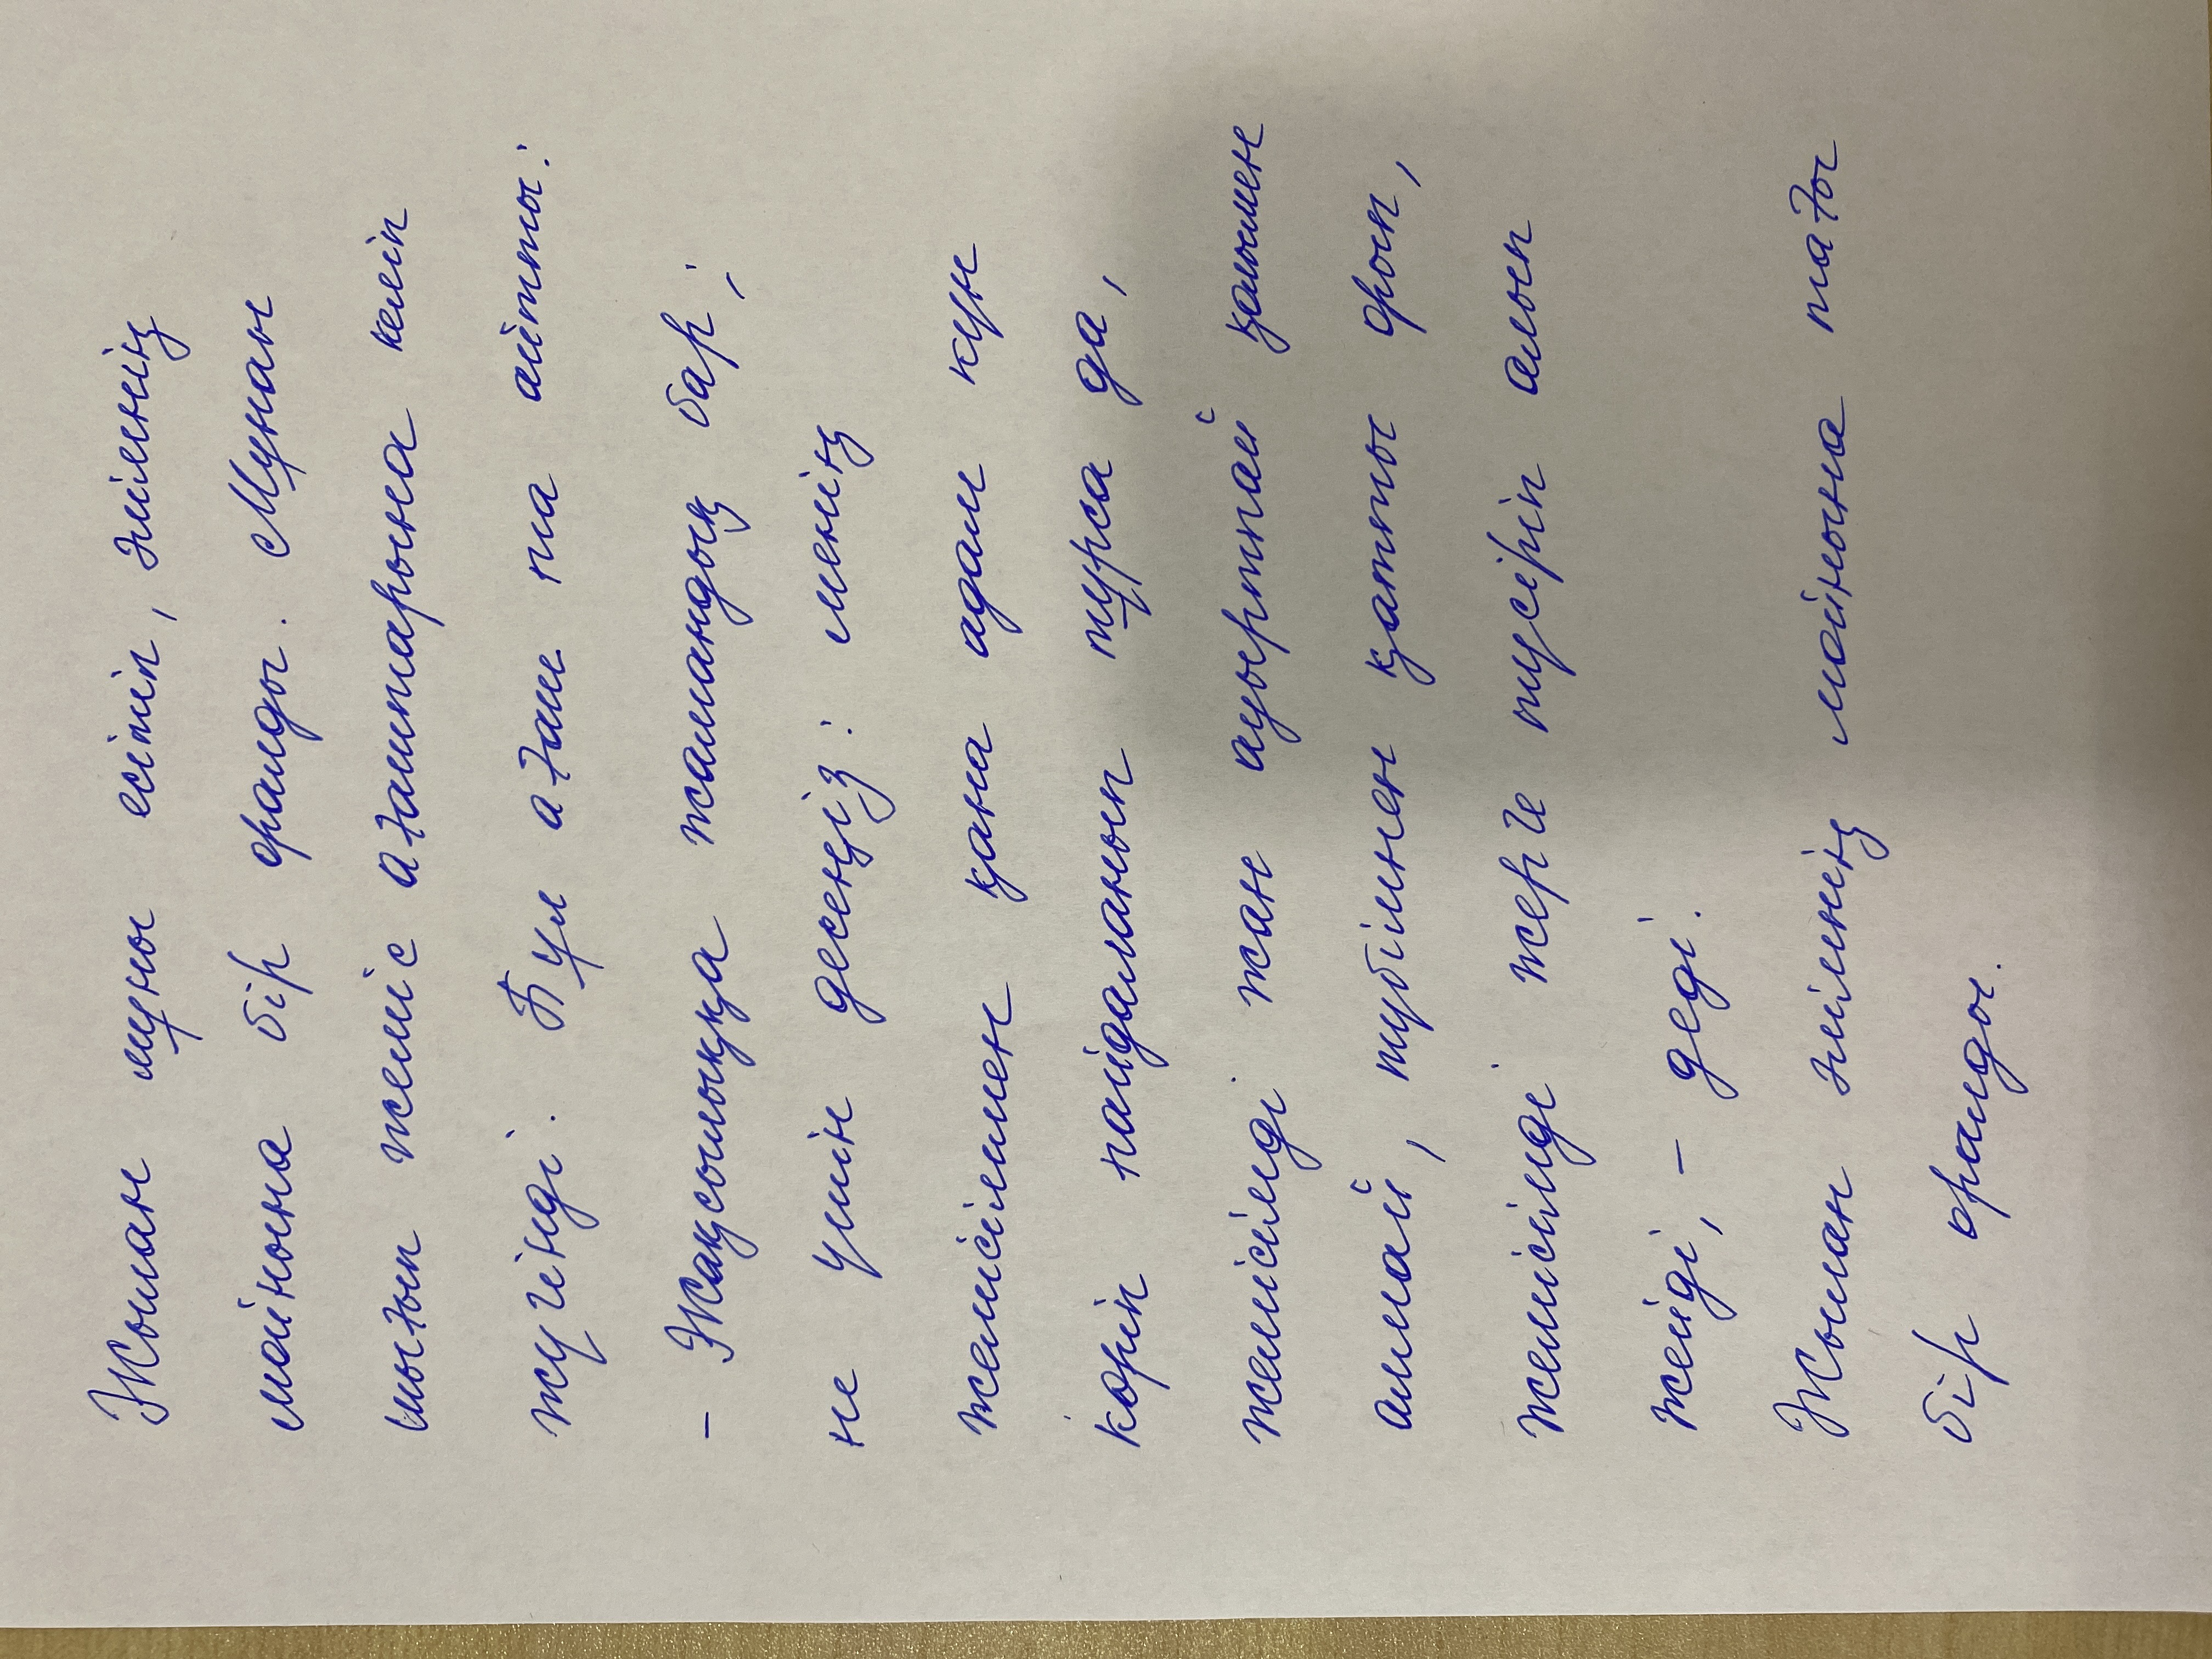 Жылан мұны есітіп, әлімнің
мойнына бір оралды. Мұнан
шығып жеміс ағаштарына келіп
жүгінді. Бұл ағаш та айтты:
- Жақсылыққа жамандық бар;
не үшін десеңіз: менің
жемісіммен қана адам күн
көріп пайдаланып тұрса да,
жемісімді жан ауыртпай қолымен
алмай, түбімнен қатты ұрып,
жемісімді жерге түсіріп алып
жейді, - деді.
Жылан әлімнің мойнына тағы
бір оралды.